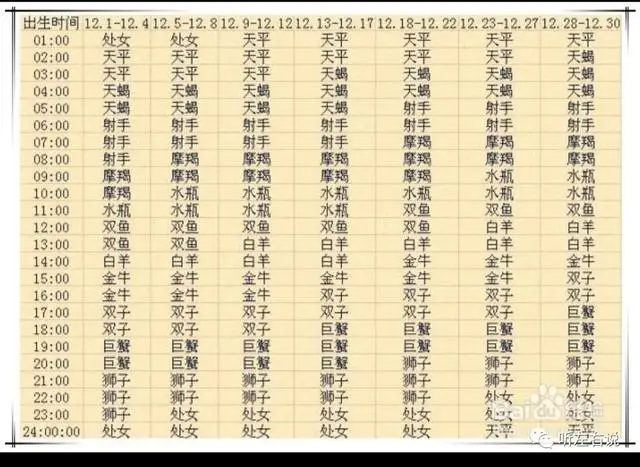 出生时间 12.1-12.4 12.5-12.8 12.9-12.12 12.13-12.17 12.18-12.22 12.23-12.27 12.28-12.30
01:00 处女 处女 天平 天平 天平 天平 天平
02:00 天平 天平 天平 天平 天平 天平 天蝎
03:00 天平 天平 天平 天平 天蝎 天蝎 天蝎
04:00 天蝎 天蝎 天蝎 天蝎 天蝎 天蝎 天蝎
05:00 天蝎 天蝎 天蝎 天蝎 射手 射手 射手
06:00 射手 射手 射手 射手 射手 射手 射手
07:00 射手 射手 射手 射手 摩羯 摩羯 摩羯
08:00 射手 摩羯 摩羯 摩羯 摩羯 摩羯 摩羯
09:00 摩羯 摩羯 摩羯 摩羯 摩羯 水瓶 水瓶
10:00 摩羯 水瓶 水瓶 水瓶 水瓶 水瓶 水瓶
11:00 水瓶 水瓶 水瓶 水瓶 双鱼 双鱼 双鱼
12:00 双鱼 双鱼 双鱼 双鱼 双鱼 白羊 白羊
13:00 双鱼 双鱼 白羊 白羊 白羊 白羊 白羊
14:00 白羊 白羊 白羊 白羊 金牛 金牛 金牛
15:00 金牛 金牛 金牛 金牛 金牛 金牛 双子
16:00 金牛 金牛 金牛 双子 双子 双子 双子
17:00 双子 双子 双子 双子 双子 双子 巨蟹
18:00 双子 双子 双子 巨蟹 巨蟹 巨蟹 巨蟹
19:00 巨蟹 巨蟹 巨蟹 巨蟹 巨蟹 巨蟹 巨蟹
20:00 巨蟹 巨蟹 巨蟹 巨蟹 狮子 狮子 狮子
21:00 狮子 狮子 狮子 狮子 狮子 狮子 狮子
22:00 狮子 狮子 狮子 狮子 狮子 处女 处女
23:00 狮子 处女 处女 处女 处女 处女 处女
24:00:00 处女 处女 处女 处女 处女 天平 天平
Baidu经验
听左右说